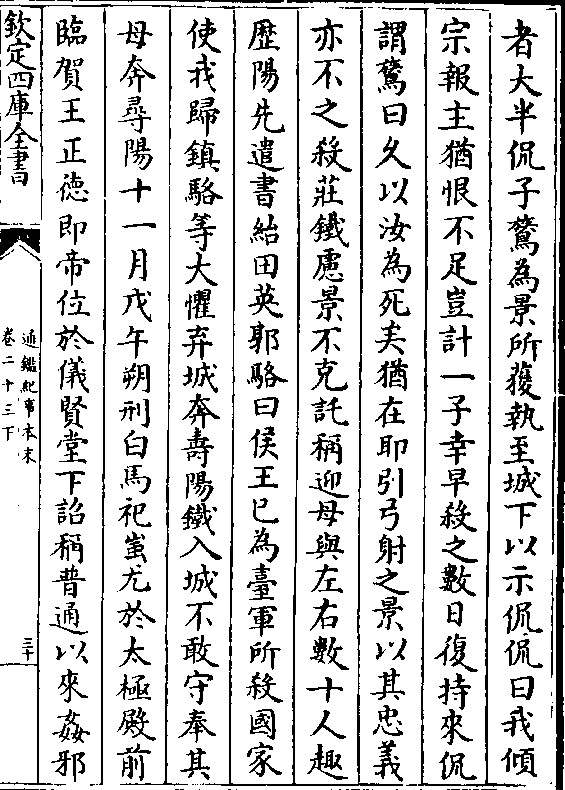 者大半侃子鷟為景所獲執至城下以示侃侃曰我傾
宗報主猶恨不足豈計一子幸早殺之數日復持來侃
謂鷟曰久以汝為死矣猶在耶引弓射之景以其忠義
亦不之殺莊鐵慮景不克託稱迎母與左右數十人趣
歴陽先遣書紿田英郭駱曰侯王已為臺軍所殺國家
使我歸鎮駱等大懼弃城奔壽陽鐵入城不敢守奉其
母奔尋陽十一月戊午朔刑白馬祀蚩尤於太極殿前
臨賀王正德即帝位於儀賢堂下詔稱普通以來姦邪
欽定四庫全書
通鑑紀事本末
卷二十三下
三十